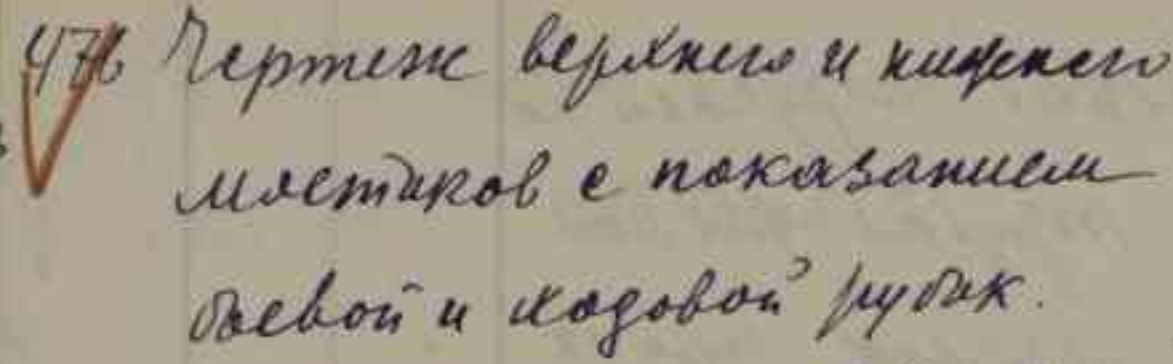 476 Чертеж верхнего и нижнего
мостиков с показанием
боевой и ходовой рубок.